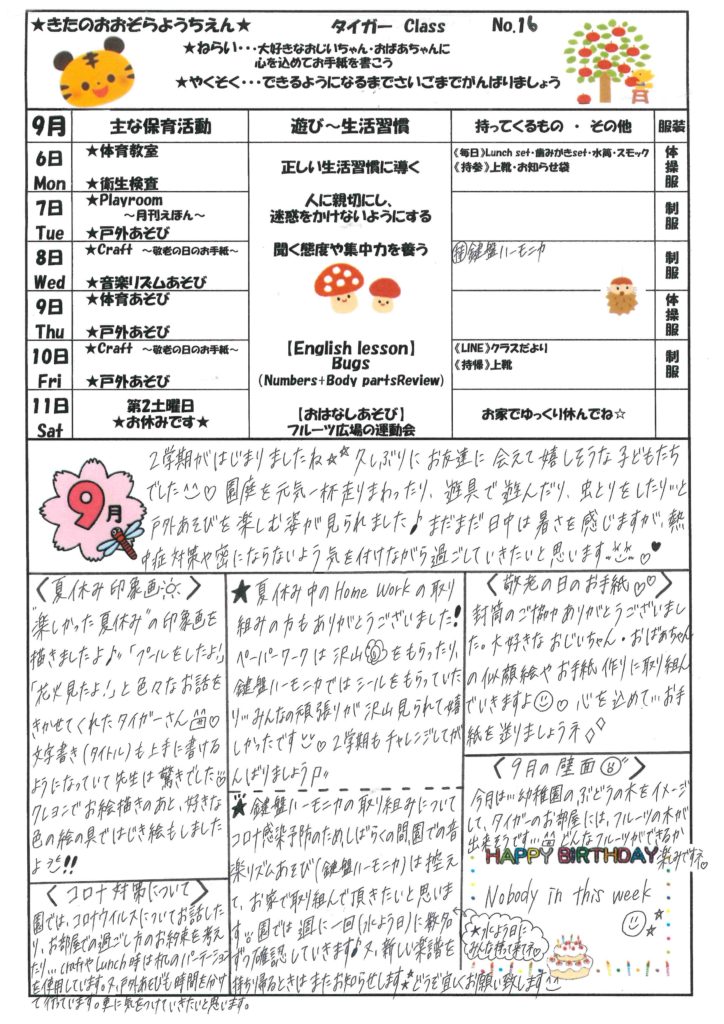 ★きたのおおぞらようちえん★ タイガー Class No.16
★ねらい・・・大好きなおじいちゃん・おばあちゃんに
心を込めてお手紙を書こう
★やくそく・・・できるようになるまでさいごまでがんばりましょう
9月 主な保育活動 遊び～生活習慣 持ってくるもの ・ その他 服装
6日 Mon
★体育教室
★衛生検査
《毎日》Lunch set・歯みがきset・水筒・スモック
《持参》上靴・お知らせ袋
体操服
7日 Tue
★Playroom
～月刊えほん～
★戸外あそび
制服
8日 Wed
★Craft ～敬老の日のお手紙～
★音楽リズムあそび
鍵盤ハーモニカ
制服
9日 Thu
★体育あそび
★戸外あそび
体操服
10日 Fri
★Craft ～敬老の日のお手紙～
★戸外あそび
《LINE》クラスだより
《持帰》上靴
制服
11日 Sat
第2土曜日
★お休みです★
お家でゆっくり休んでね☆
正しい生活習慣に導く
人に親切にし、
迷惑をかけないようにする
聞く態度や集中力を養う
【English lesson】
Bugs
(Numbers+Body partsReview)
【おはなしあそび】
フルーツ広場の運動会
9月
2学期がはじまりましたね☆☆久しぶりにお友達に会えて嬉しそうな子どもたち
でした^^♡園庭を元気一杯走りまわったり、遊具で遊んだり、虫とりをしたり…と
戸外あそびを楽しむ姿が見られました♪まだまだ日中は暑さを感じますが、熱
中症対策や密にならないよう気を付けながら過ごしていきたいと思います♡♥
〈夏休み印象画〉
"楽しかった夏休み"の印象画を
描きましたよ♪〃「プールをしたよ!」
「花火見たよ!」と色々なお話を
きかせてくれたタイガーさん♡
文字書き(タイトル)も上手に書ける
ようになっていて先生は驚きでした
クレヨンでお絵描きのあと、好きな
色の絵の具ではじき絵もしました
よ!!
〈コロナ対策について〉
園では、コロナウイルスについてお話した
り、お部屋での過ごし方のお約束を考え
たり…craftやLunch時はパーテーション
を使用しています。又、戸外あそびも時間を分け
て行っています。更に気をつけていきたいと思います。
★夏休み中のHome Workの取り
組みの方もありがとうございました!
ペーパーワークは沢山をもらったり、
鍵盤ハーモニカではシールをもらっていた
り…みんなの頑張りが沢山見られて嬉
しかったです♡2学期もチャレンジしてが
んばりましょう
★鍵盤ハーモニカの取り組みについて
コロナ感染予防のためしばらくの間、園での音
楽リズムあそび(鍵盤ハーモニカ)は控え
て、お家で取り組んで頂きたいと思いま
す。園では週に一回(水よう日)に数名
ずつ確認していきます♪又、新しい楽譜を
持ち帰るときはまたお知らせします★どうぞ宜しくお願い致します^^
〈敬老の日のお手紙♡♡〉
封筒のご協力ありがとうございまし
た。大好きなおじいちゃん・おばあちゃん
の似顔絵やお手紙作りに取り組ん
でいきますよ♡心を込めて…お手
紙を送りましょうネ◇◇
〈9月の壁面〉
今月は…幼稚園のぶどうの木をイメージ
して、タイガーのお部屋には、フルーツの木が
出来そうです…どんなフルーツができるか
楽しみですネ
HAPPY BIRTHDAY
Nobody in this week
★水よう日に
みんな持って来てネ